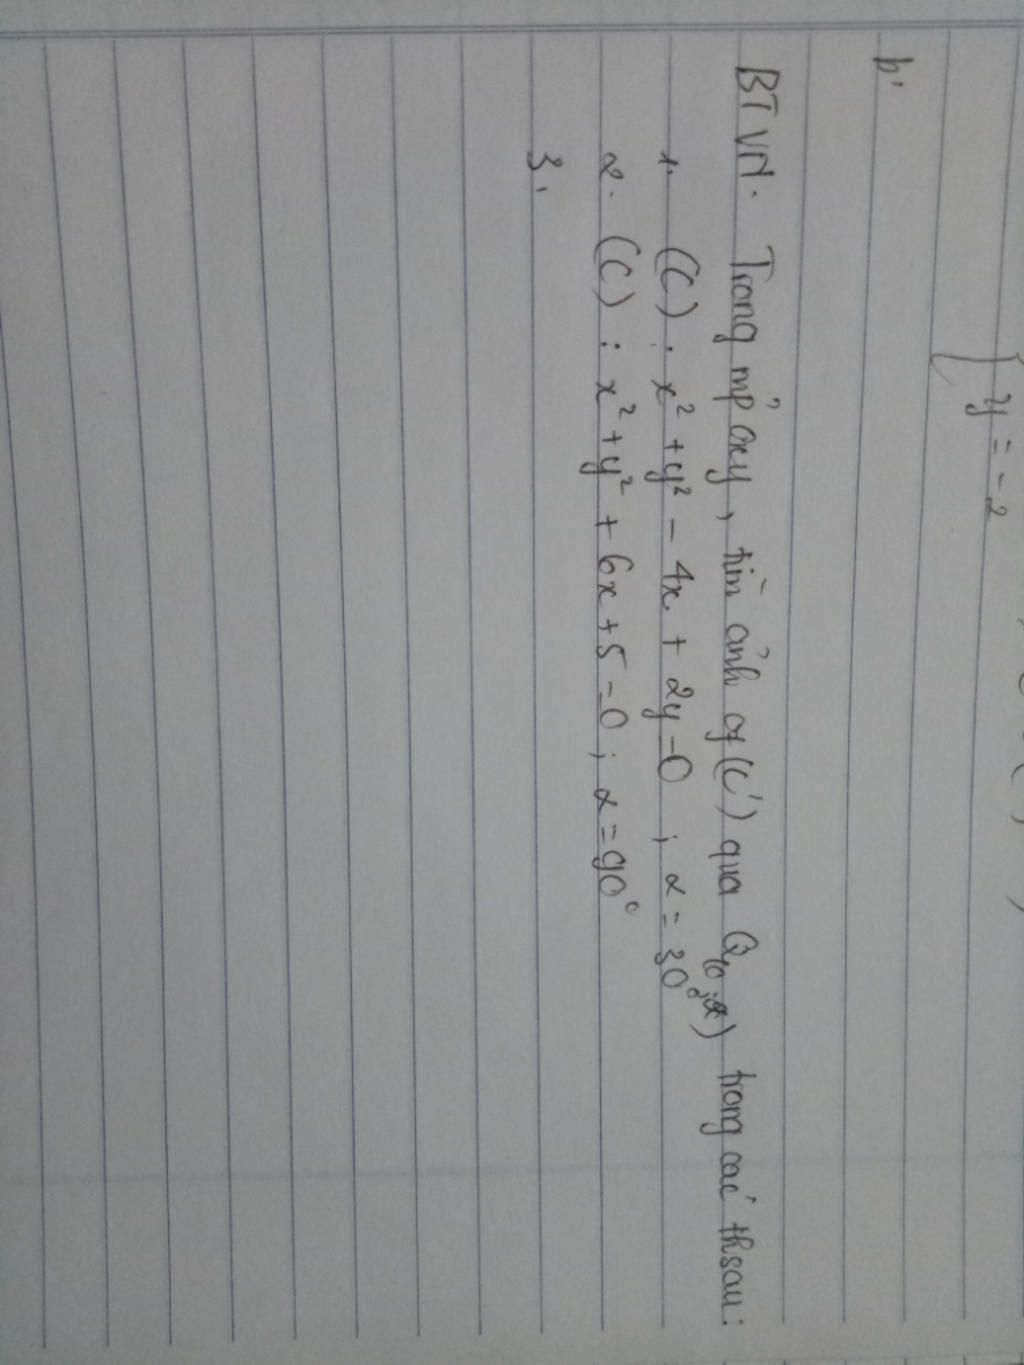 y = -2
b.
BTVN. Trong mp oxy, tìm ảnh of (C') qua Q(O;α) trong các th sau:
1. (C): x² + y² - 4x + 2y = 0 ; α = 30°
2. (C): x² + y² + 6x + 5 = 0 ; α = 90°
3.